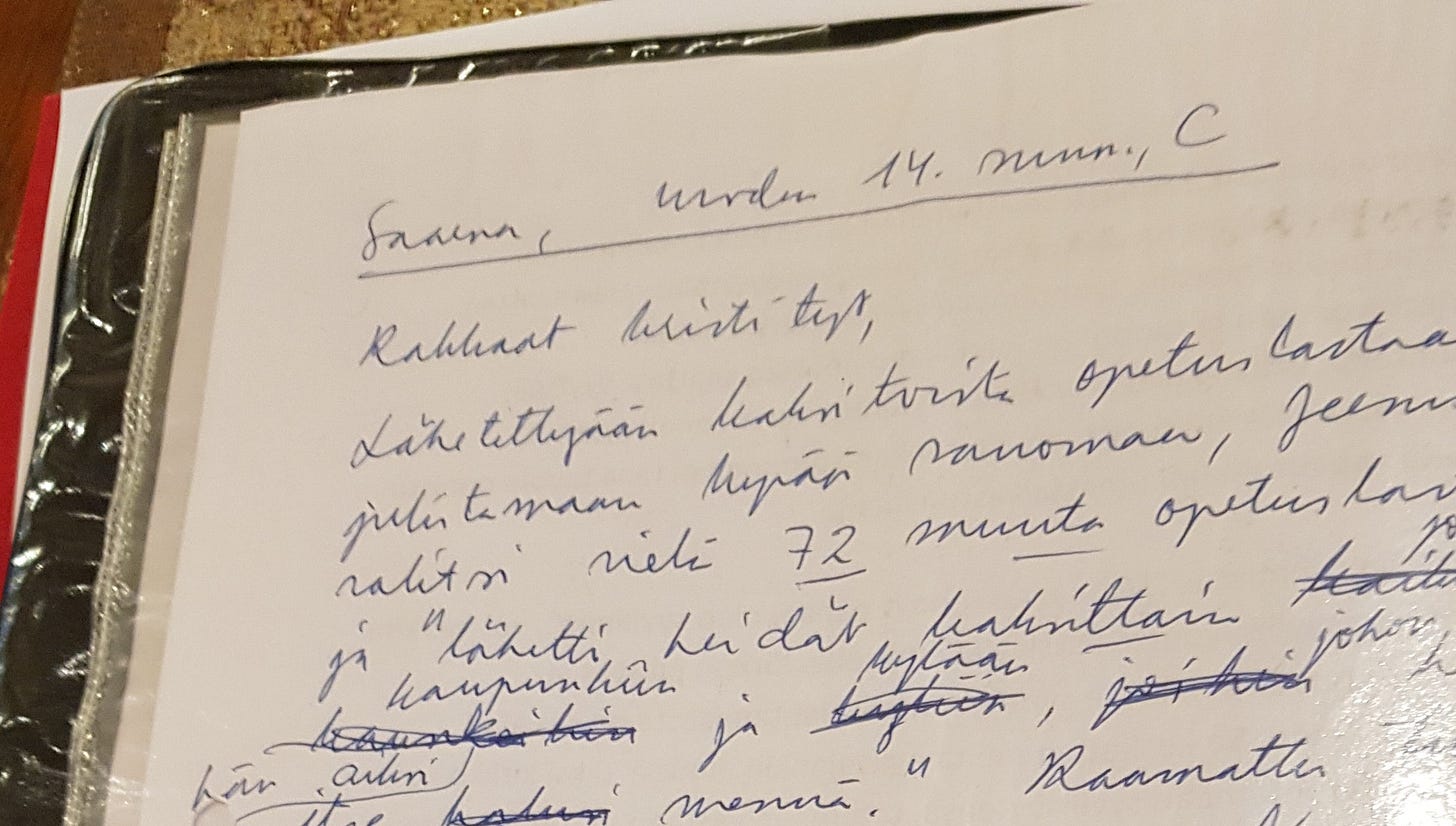 Saarna, vuoden 14. sunn., C
Rakkaat kristityt,
Lähetettyään kaksitoista opetuslastaa
julistamaan hyvää sanomaa, Jeesus
valitsi vielä 72 muuta opetuslas
ja "lähetti heidät kaksittain
kaupunkiin kylään johon
ja
hän aikoi
itse mennä." Raamattu